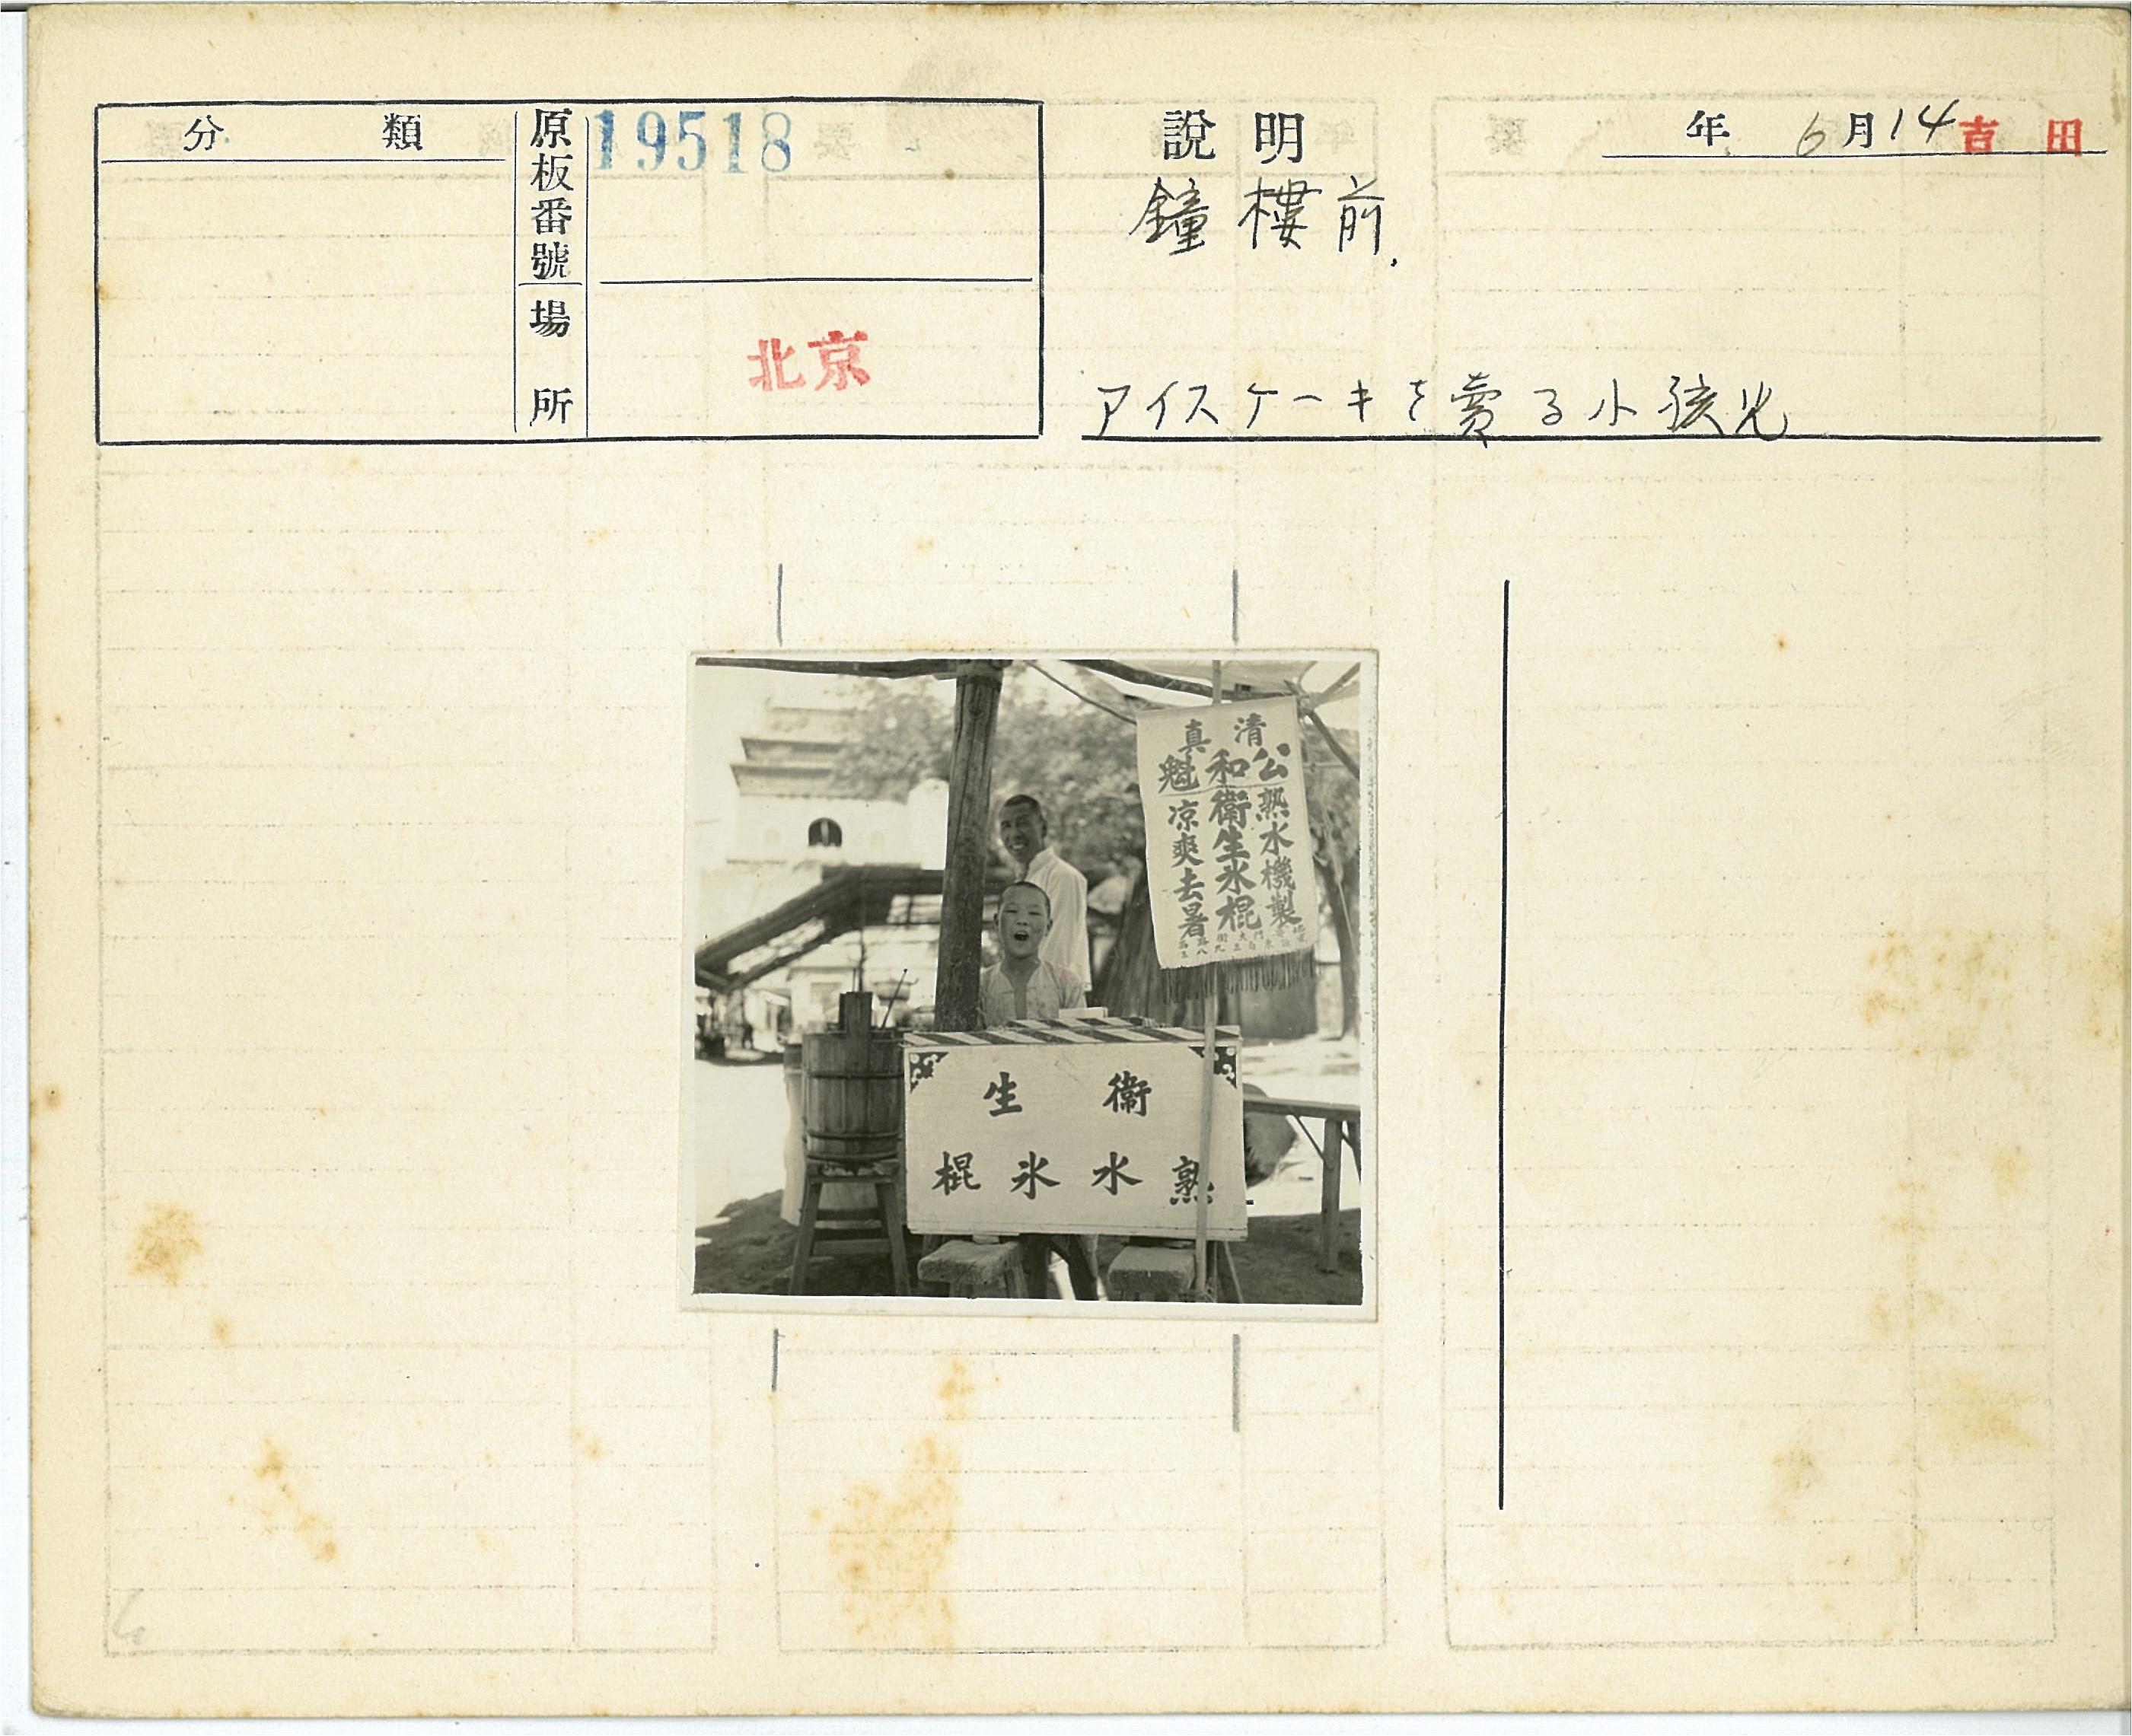 分類
原板番號
19518
場所
北京
說明
年 6月14 吉田
鐘樓前.
アイスケーキを賣る小孩児
清真
公和魁
熟水機製
衛生氷棍
凉爽去暑
衛生
熟水氷棍